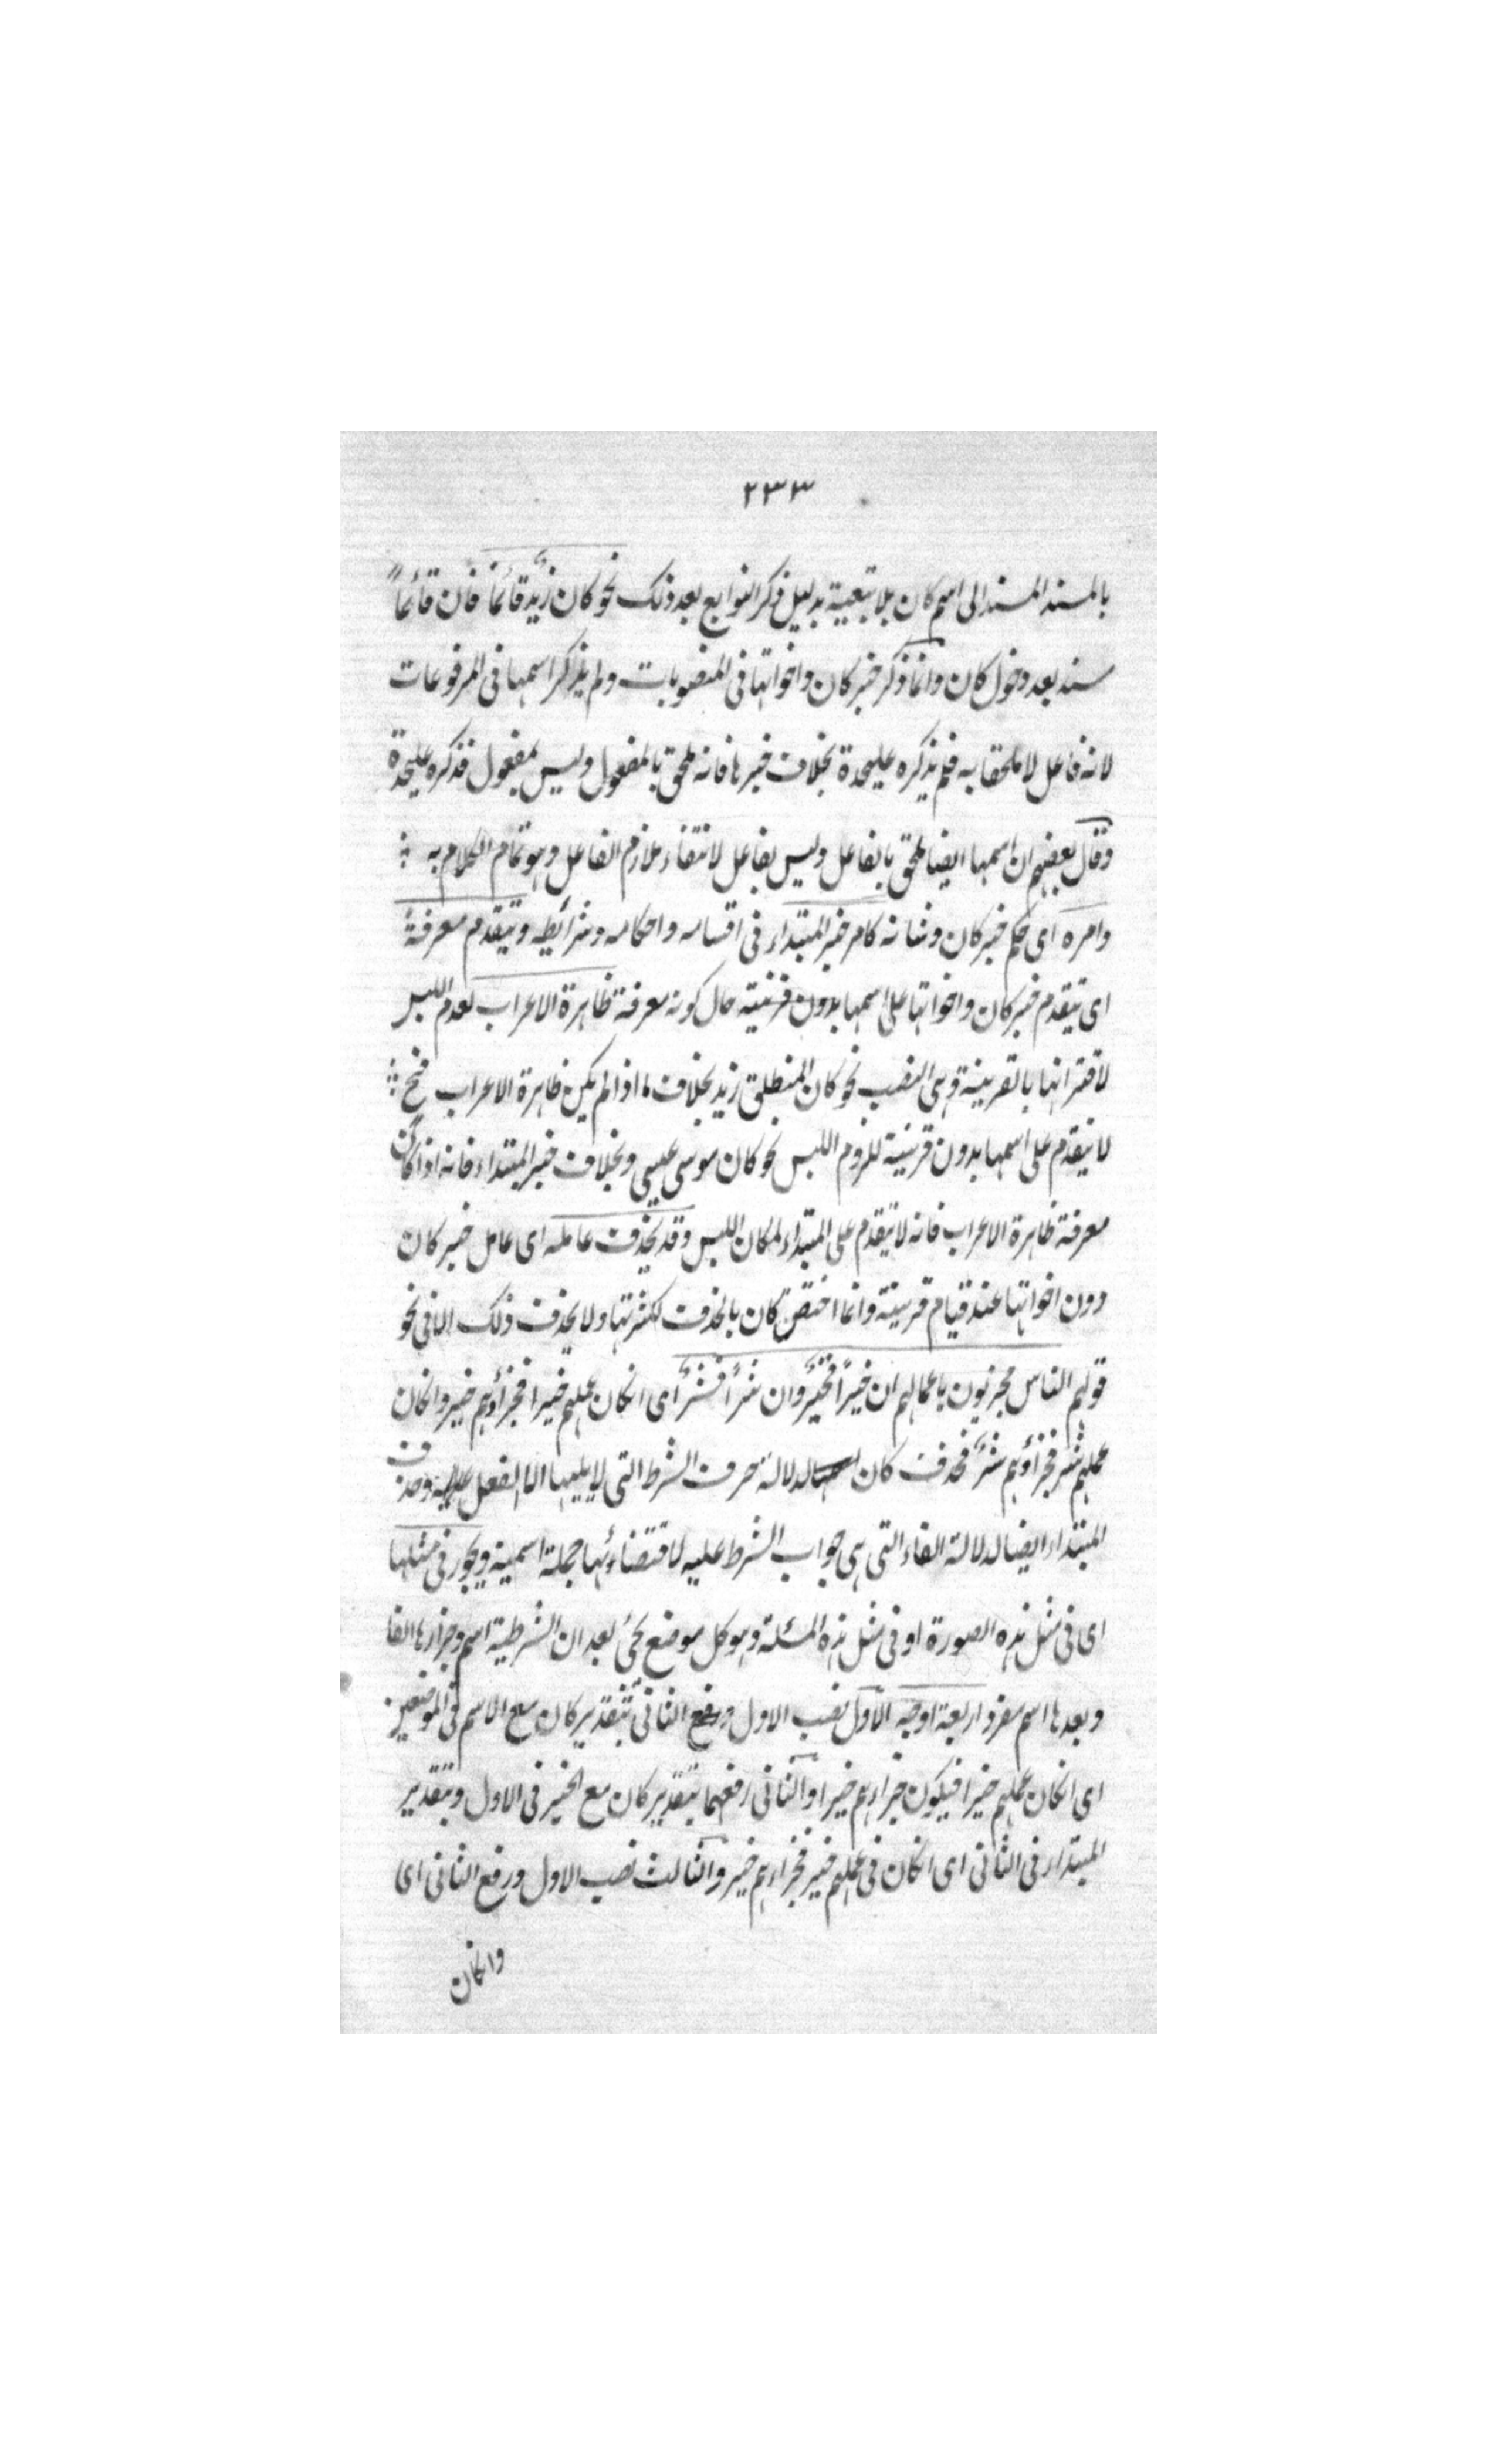 ٢٣٣
بالمسند المسند الى اسم كان بلا تبعية بدليل ذكر التوابع بعد ذلك نحو كان زيد قائما فان قائماً
مسند بعد دخول كان وانما ذكر خبر كان واخواتها فى المنصوبات ولم يذكر اسمها فى المرفوعات
لانه فاعل لا ملحقا به فلم يذكره عليحدة بخلاف خبرها فانه ملحق بالمفعول وليس بمفعول فذكره عليحدة
وقال بعضهم ان اسمها ايضا ملحق بالفاعل وليس بفاعل لانتفاء لازم الفاعل وهو تمام الكلام به
وامره اى حكم خبر كان وشانه كامر خبر المبتداء فى اقسامه واحكامه وشرائطه ويتقدم معرفةً
اى يتقدم خبر كان واخواتها على اسمها بدون قرينية حال كونه معرفة ظاهرة الاعراب لعدم اللبس
لاقترانها بالقرينية وهى النصب نحو كان المنطلق زيد بخلاف ما اذا لم يكن ظاهرة الاعراب فح
لا يتقدم على اسمها بدون قرينية للزوم اللبس نحو كان موسى عيسى وبخلاف خبر المبتداء فانه اذا كان
معرفة ظاهرة الاعراب فانه لا يتقدم على المبتداء لمكان اللبس وقد يحذف عامله اى عامل خبر كان
دون اخواتها عند قيام قرينية وانما اختص كان بالحذف لكثرتها ولا يحذف ذلك الا فى نحو
قولهم الناس مجزيون باعمالهم ان خيراً فخيرٌ وان شراً فشرٌ اى انكان عملهم خيرا فجزاؤهم خير وانكان
عملهم شر فجزاؤهم شرٌ فحذف كان لدلالة حرف الشرط التى لا يليها الا الفعل عليه وحذف
المبتداء ايضا لدلالة الفاء التى هى جواب الشرط عليه لاقتضائها جملة اسمية ويجوز فى مثلها
اى فى مثل هذه الصورة او فى مثل هذه المسئلة وهو كل موضع يجئ بعد ان الشرطية اسم وجزاءها الفا
وبعدها اسم مفرد اربعة اوجه الاول نصب الاول ورفع الثانى بتقدير كان مع الاسم فى الموضعين
اى انكان عملهم خيرا فيكون جزاءهم خيرا والثانى رفعهما بتقدير كان مع الخبر فى الاول وبتقدير
المبتداء فى الثانى اى انكان فى عملهم خير فجزاءهم خير والثالث نصب الاول ورفع الثانى اى
وانكان